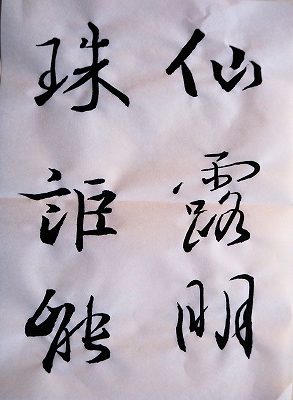 仙露明
珠詎能